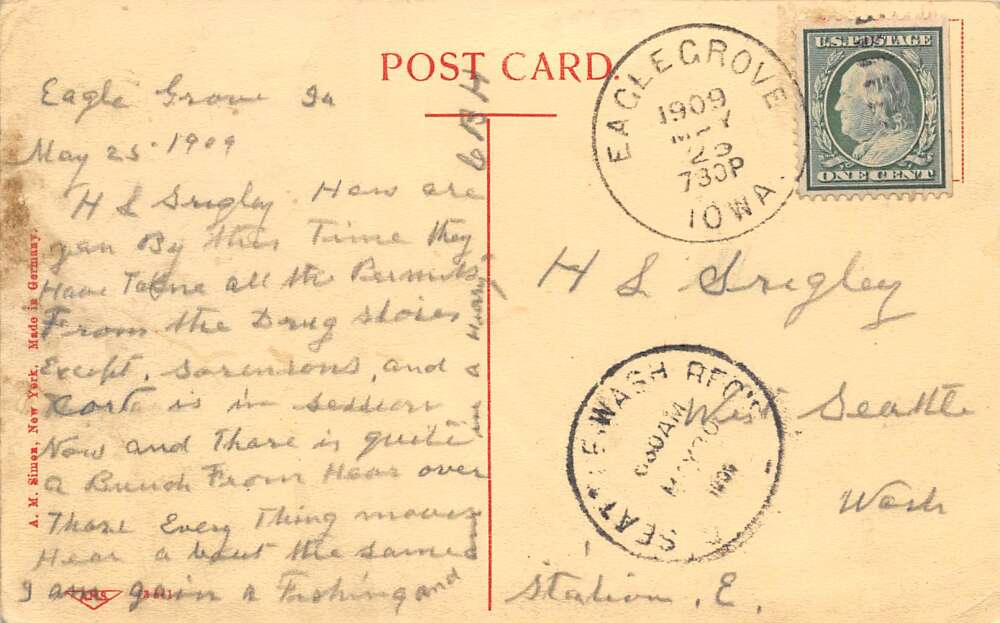 POST CARD.
Eagle Grove Ia
May 25 1909
H L Srigley. How are
you By this Time they
Have Takne all the Permits
From the Drug stores
Except, Sorensons, and
Kort is in session
Now and Thare is quite
a Bunch From Hear over
Thare Every Thing moves
Hear a bout the same
I am goin a Fishing and
in Hurry
G B H
A. M. Simon, New York. Made in Germany.
EAGLE GROVE
1909
MAY
25
730P
IOWA.
U.S. POSTAGE
ONE CENT
H L Srigley
SEATTLE, WASH REC'D
630 AM
MAY 30
1909
West Seattle
Wash
Station, E.